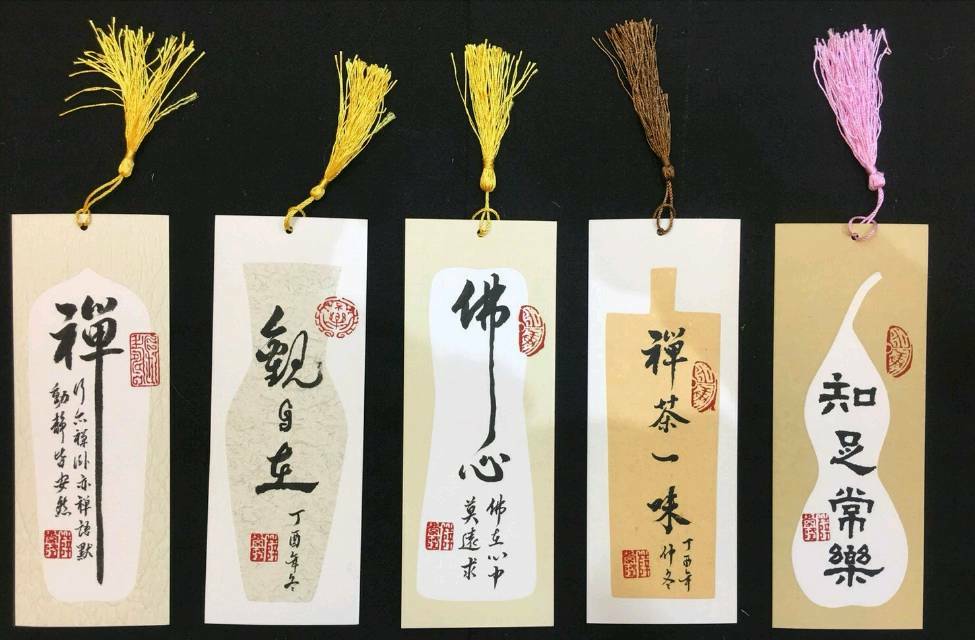 禪
行亦禪卧亦禪語默
動靜皆安然
觀自在
丁酉年冬
佛心
佛在心中
莫遠求
禪茶一味
丁酉年
仲冬
知足常樂